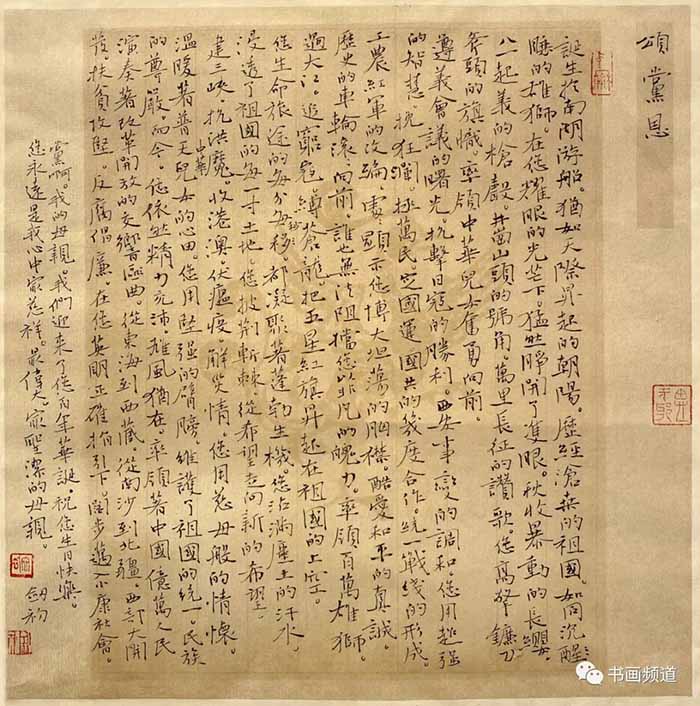 頌黨恩
誕生於南湖游船。猶如天際昇起的朝陽。歷經滄桑的祖國。如同沉醒
睡的雄獅。在您耀眼的光芒下。猛然睜開了雙眼。秋收暴動的長纓。
八一起義的槍聲。井崗山頭的號角。萬里長征的讚歌。您高擎鐮刀
斧頭的旗幟。率領中華兒女奮勇向前。
遵義會議的曙光。抗擊日寇的勝利。西安事變的調和。您用超强
的智慧。挽狂瀾。拯萬民。定國運。國共的幾度合作。統一戰綫的形成。
工農紅軍的改編。處處顯示您博大坦蕩的胸襟。酷愛和平的真誠。
歷史的車輪滚向前。誰也無法阻擋。您以非凡的魄力。率領百萬雄獅。
過大江。追窮寇。縛蒼龍。把五星紅旗昇起在祖國的上空。
您生命旅途的每分每秒。都凝聚著蓬勃生機。您沾滿塵土的汗水。
浸透了祖國的每一寸土地。您披荆斬棘。從希望走向新的希望。
建三峽。抗洪魔。收港澳。伏瘟疫。解災情。您用慈母般的情懷。
溫暖著普天兒女的心田。您用堅强的臂膀。維護了祖國的統一。民族
的尊嚴。而今。您依然精力充沛。雄風猶在。率領著中國億萬人民
演奏著改革開放的交響區曲。從東海到西藏。從南沙到北疆。西部大開
發。扶貧攻堅。反腐倡廉。在您英明正確指引下。闊步邁入小康社會。
黨啊。我的母親。我們迎來了您百年華誕。祝您生日快樂。
您永遠是我心中最慈祥。最偉大。最聖潔的母親。
书画频道